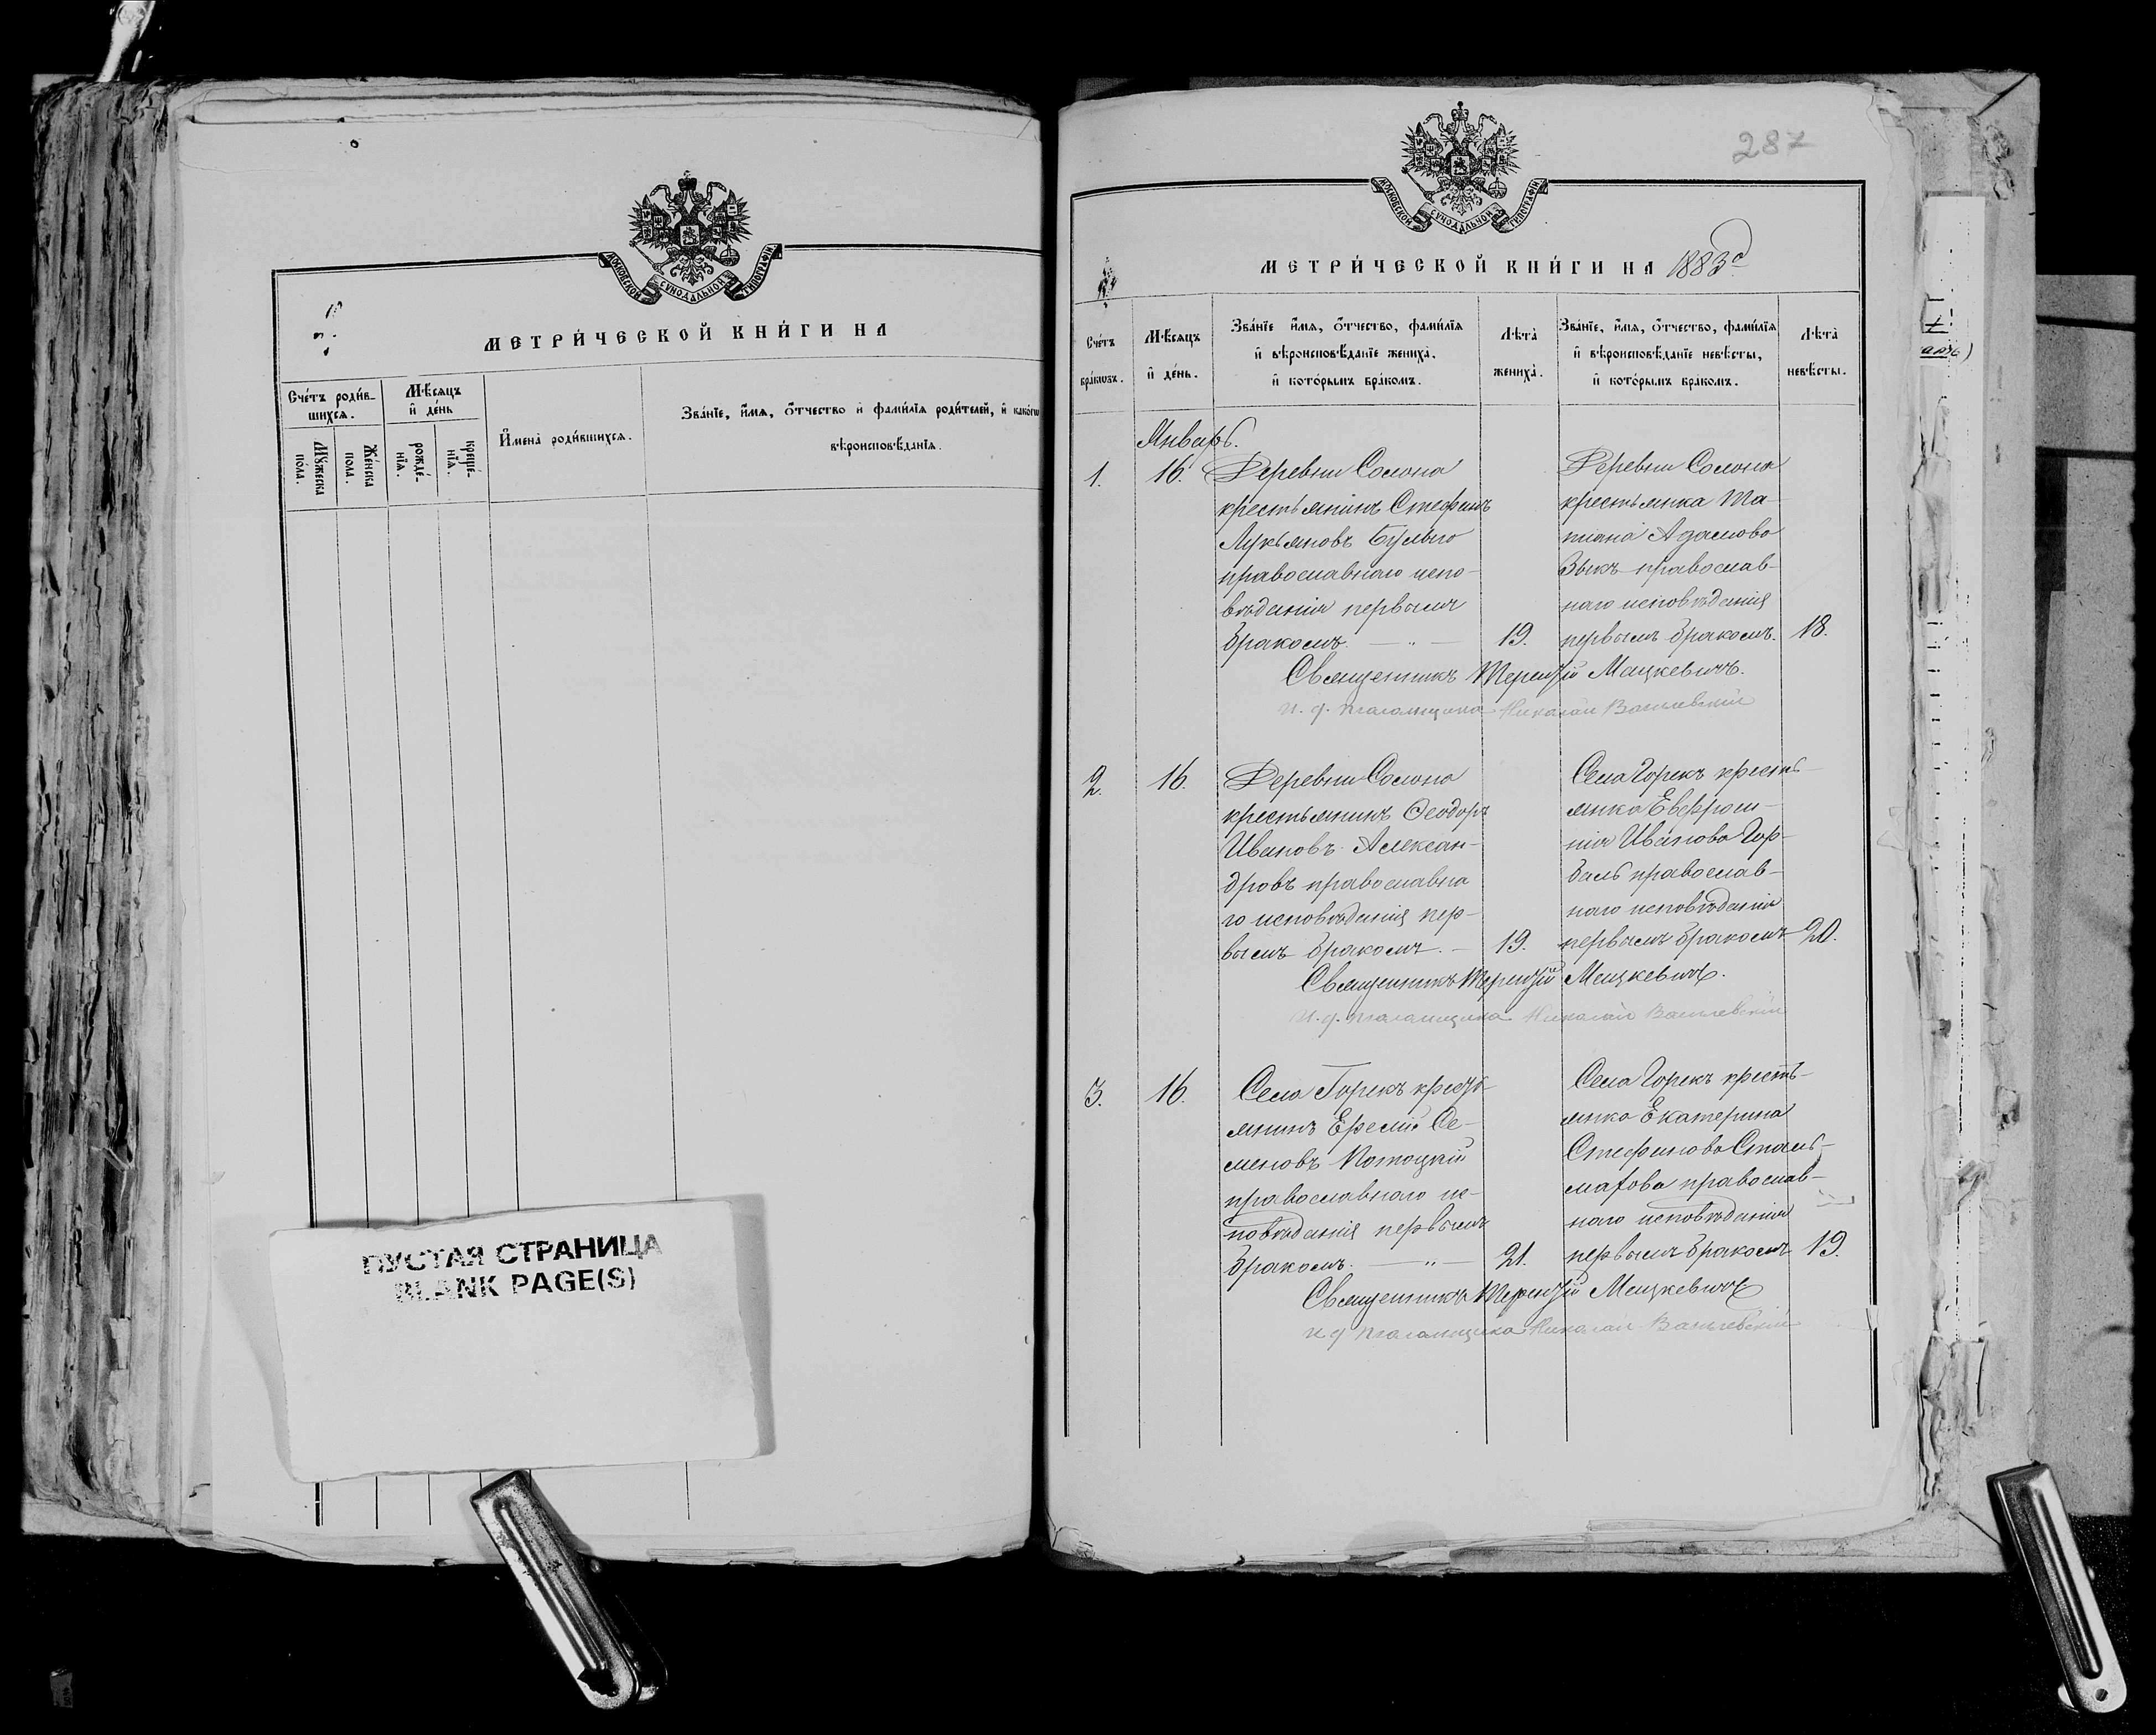 МОСКОВСКОЙ СѴНОДАЛЬНОЙ ТИПОГРАФІИ
МЕТРИ́ЧЕСКОЙ КНИ́ГИ НА
Сче́тъ роди́в-
шихся.
Мѣ́сяцъ
и҆ де́нь
Му́жеска
пола.
Же́нска
пола.
рожде́-
нїя.
креще́-
нїя.
И҆мена̀ роди́вшихся.
Зва́нїе, и҆́мя, ѻ҆́тчество и҆ фами́лїя роди́телей, и҆ како́гѡ
вѣроисповѣ́данїя.
ПУСТАЯ СТРАНИЦА
BLANK PAGE(S)
287
МОСКОВСКОЙ СѴНОДАЛЬНОЙ ТИПОГРАФІИ
МЕТРИ́ЧЕСКОЙ КНИ́ГИ НА 1883
Сче́тъ
бра́кѡвъ.
Мѣ́сяцъ
и҆ де́нь.
Зва́нїе и҆́мя, ѻ҆́тчество, фами́лїя
и҆ вѣроисповѣ́данїе жениха̀,
и҆ кото́рымъ бра́комъ.
Лѣ́та
жениха̀.
Зва́нїе, и҆́мя, ѻ҆́тчество, фами́лїя
и҆ вѣроисповѣ́данїе невѣ́сты,
и҆ кото́рымъ бра́комъ.
Лѣ́та
невѣ́сты.
Январь.
1.
16.
Деревни Солона
крестьянинъ Стефанъ
Лукьяновъ Булыго
православнаго испо-
вѣданія первымъ
бракомъ. — „ —
19.
Деревни Солона
крестьянка Та-
тиана Адамова
Зыкъ православ-
наго исповѣданія
первымъ бракомъ.
18.
Священникъ Терентій Мацкевичъ.
и. д. псаломщика Николай Василевскій
2.
16.
Деревни Солона
крестьянинъ Ѳеодоръ
Ивановъ Алексан-
дровъ православна
го исповѣданія пер-
вымъ бракомъ. —
19.
Села Горекъ кресть-
янка Евфроси-
нія Иванова Гор-
баль православ-
наго исповѣданія
первымъ бракомъ
20.
Священникъ Терентій Мацкевичъ.
и. д. псаломщика Николай Василевскій
3.
16.
Села Горекъ кресть-
янинъ Еремій Се-
меновъ Потоцкій
православнаго ис-
повѣданія первымъ
бракомъ. — „ —
21.
Села Горекъ кресть-
янка Екатерина
Стефанова Сталь-
махова православ-
наго исповѣданія
первымъ бракомъ
19.
Священникъ Терентій Мацкевичъ
и. д псаломщика Николай Василевскій